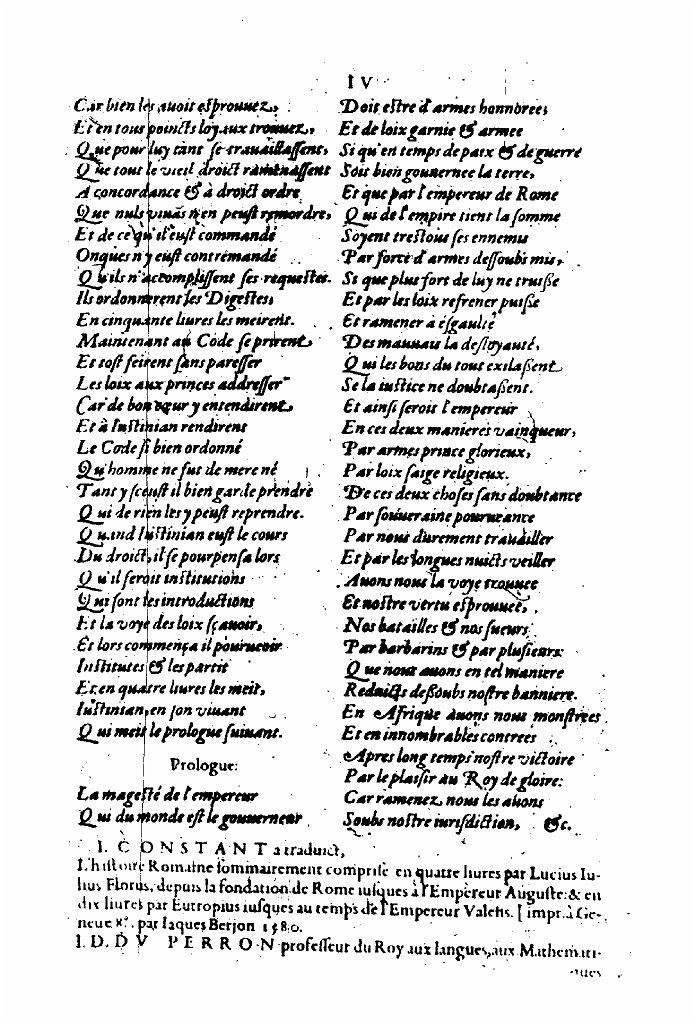 IV
Car bien les auoit esprouuez,
Et en tous poincts loyaux trouuez,
Que pour luy tant se trauaillassent,
Que tout le vieil droict ramenassent
A concordance & à droict ordre
Que nuls viuās n'en peust remordre,
Et de ce qu'il eust commandé
Onques n'y eust contremandé
Qu'ils n'accomplissent ses requestes.
Ils ordonnerent les Digestes,
En cinquante liures les meirent.
Maintenant au Code se prirent
Et tost feirent sans paresser
Les loix aux princes addresser
Car de bon cœur y entendirent
Et à Iustinian rendirent
Le Code si bien ordonné
Qu'homme ne fut de mere né
Tant y sceust il bien garde prendre
Qui de rien les y peust reprendre.
Quand Iustinian eust le cours
Du droict, il se pourpensa lors
Qu'il feroit institutions
Qui sont les introductions
Et la voye des loix sçauoir,
Et lors commença il pouruoir
Institutes & les partit
Et en quatre liures les meit,
Iustinian, en son viuant
Qui meit le prologue suiuant.
Prologue:
La magesté de l'empereur
Qui du monde est le gouuerneur
Doit estre d'armes honnoree,
Et de loix garnie & armee
Si qu'en temps de paix & de guerre
Soit bien gouuernee la terre,
Et que par l'empereur de Rome
Qui de l'empire tient la somme
Soyent trestous ses ennemis
Par force d'armes dessoubs mis,
Si que plus fort de luy ne truisse
Et par les loix refrener puisse
Et ramener à esgaulté
Des mauuais la desloyauté,
Qui les bons du tout exilassent
Se la iustice ne doubtassent.
Et ainsi seroit l'empereur
En ces deux manieres vainqueur,
Par armes prince glorieux,
Par loix saige religieux.
De ces deux choses sans doubtance
Par souueraine pourueance
Par nous durement trauailler
Et par les longues nuicts veiller
Auons nous la voye trouuee
Et nostre vertu esprouuee,
Nos batailles & nos sueurs
Par barbarins & par plusieurs
Que nous auons en tel maniere
Reduicts dessoubs nostre banniere.
En Afrique auons nous monstrees
Et en innombrables contrees
Apres long temps nostre victoire
Par le plaisir au Roy de gloire:
Car ramenez nous les auons
Soubs nostre iurisdiction, &c.
I. CONSTANT a traduict,
L'histoire Romaine sommairement comprise en quatre liures par Lucius Iu-
lius Florus, depuis la fondation de Rome iusques à l'Empereur Auguste: & en
dix liures par Eutropius iusques au temps de l'Empereur Valens. [impr. à Ge-
neue 8°. par Iaques Berjon 1580.
I. D. DV PERRON professeur du Roy aux langues, aux Mathemati-
ques